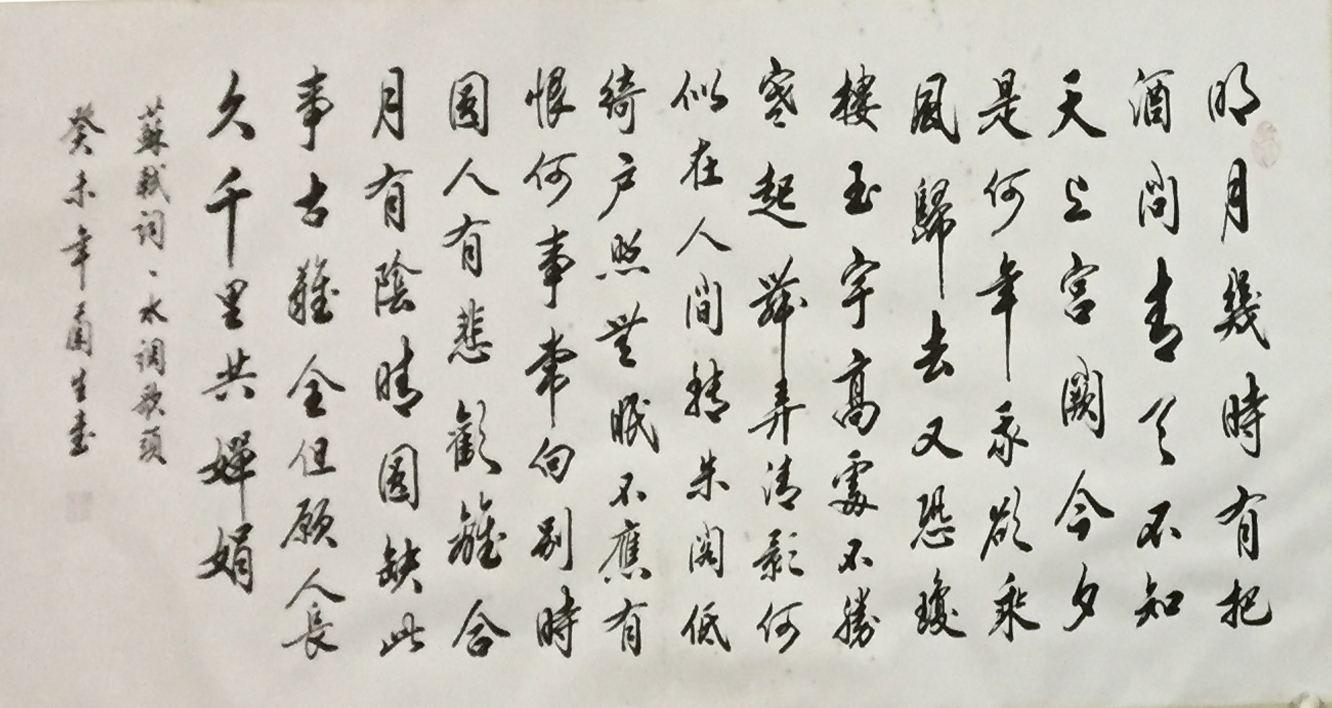 明月幾時有把
酒問青天不知
天上宫闕今夕
是何年我欲乘
風歸去又恐瓊
樓玉宇高處不勝
寒起舞弄清影何
似在人間轉朱閣低
綺户照無眠不應有
恨何事常向别時
圓人有悲歡離合
月有陰晴圓缺此
事古難全但願人長
久千里共嬋娟
蘇軾詞、水調歌頭
癸未年生書